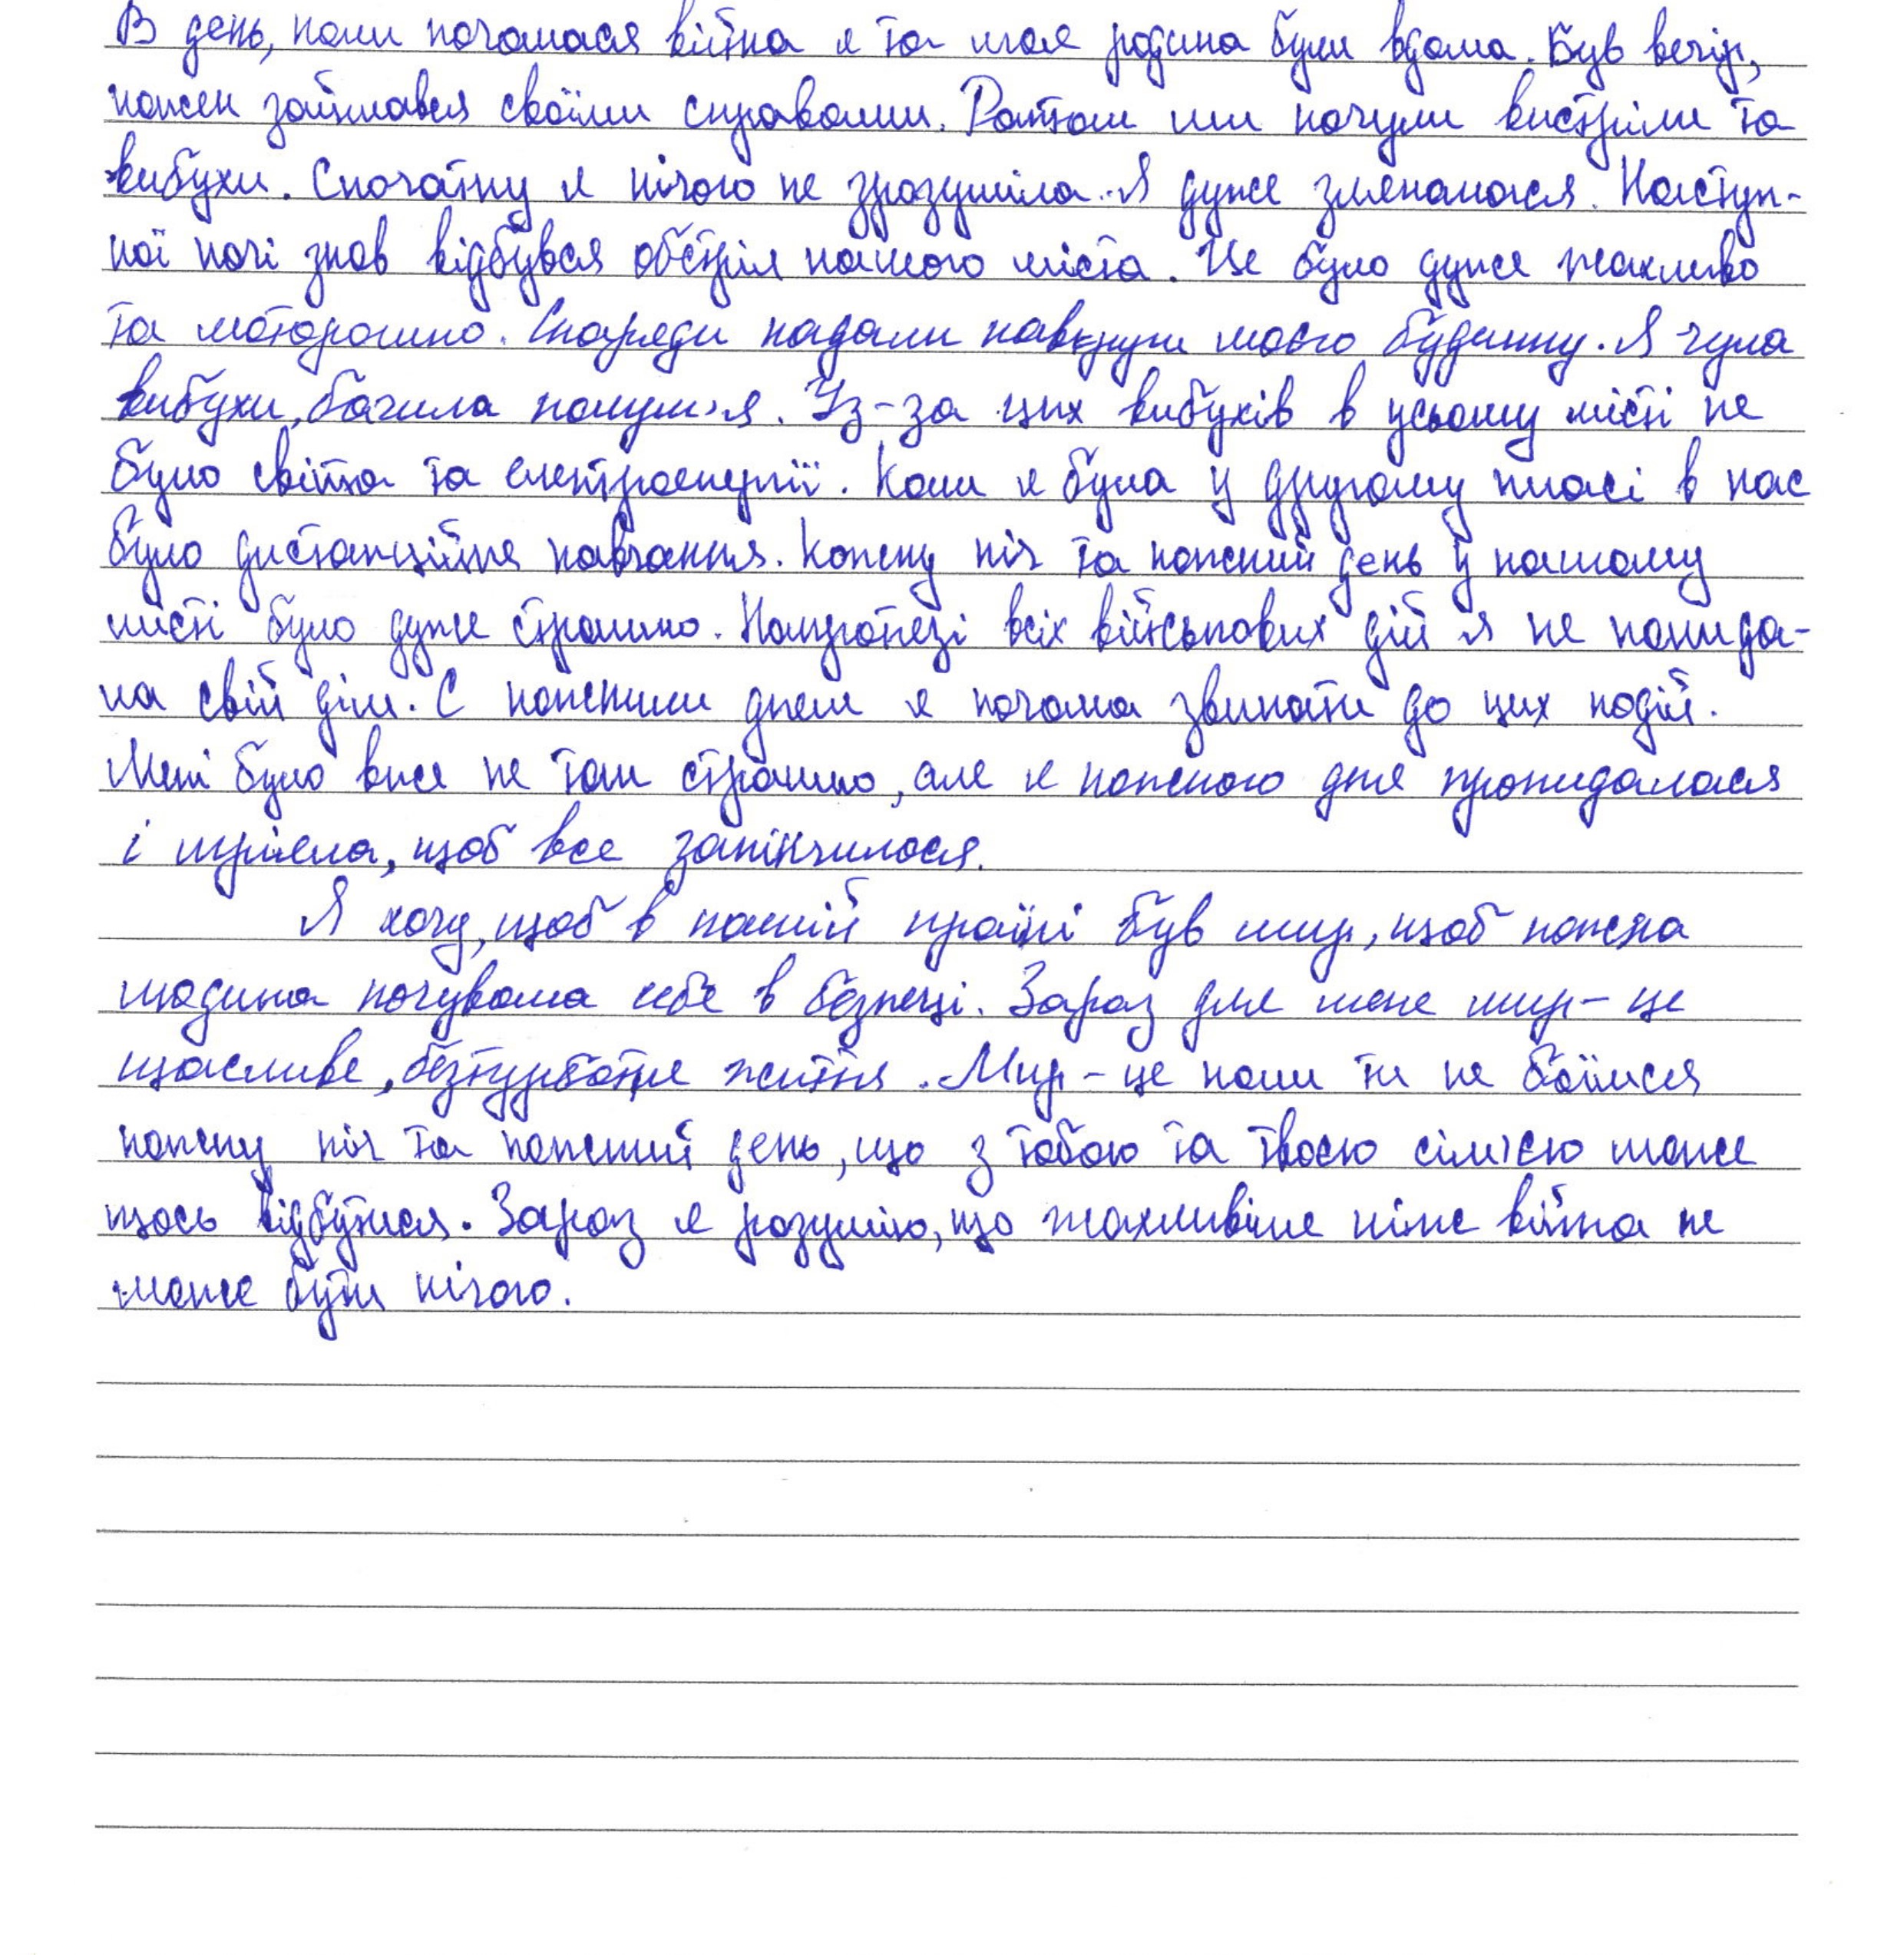 В день, коли почалася війна я та моя родина були вдома. Був вечір,
кожен займався своїми справами. Раптом ми почули вистріли та
вибухи. Спочатку я нічого не зрозуміла. Я дуже злякалася. Наступ-
ної ночі знов відбувся обстріл нашого міста. Це було дуже жахливо
та моторошно. Снаряди падали навкруги мого будинку. Я чула
вибухи, бачила полум'я. Із-за цих вибухів в усьому місті не
було світла та електроенергії. Коли я була у другому класі в нас
було дистанційне навчання. Кожну ніч та кожний день у нашому
місті було дуже страшно. Напротязі всіх військових дій я не покида-
ла свій дім. С кожним днем я почала звикати до цих подій.
Мені було вже не так страшно, але я кожного дня прокидалася
і мріяла, щоб все закінчилося.
Я хочу, щоб в нашій країні був мир, щоб кожна
людина почувала себе в безпеці. Зараз для мене мир - це
щасливе, безтурботне життя. Мир - це коли ти не боїшся
кожну ніч та кожний день, що з тобою та твоєю сім'єю може
щось відбутися. Зараз я розумію, що жахливіше ніже війна не
може бути нічого.